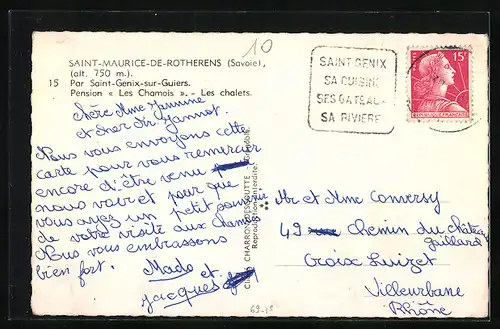 10
SAINT-MAURICE-DE-ROTHERENS (Savoie),
(alt. 750 m.).
15 Par Saint-Genix-sur-Guiers.
Pension « Les Chamois ». - Les chalets.
Chère Mme Jeannine
et cher Mr Jannot.
Nous vous envoyons cette
carte pour vous remercier
encore d'être venu
nous voir et pour que
vous ayez un petit souvenir
de votre visite aux Chamois
Nous vous embrassons
bien fort.
Mado et
Jacques
Reproduction interdite
SAINT GENIX
SA CUISINE
SES GATEAUX
SA RIVIERE
15F
REPUBLIQUE FRANÇAISE
Mr et Mme Conversy
49 Chemin du château
gaillard
Croix Luizet
Villeurbane
Rhône